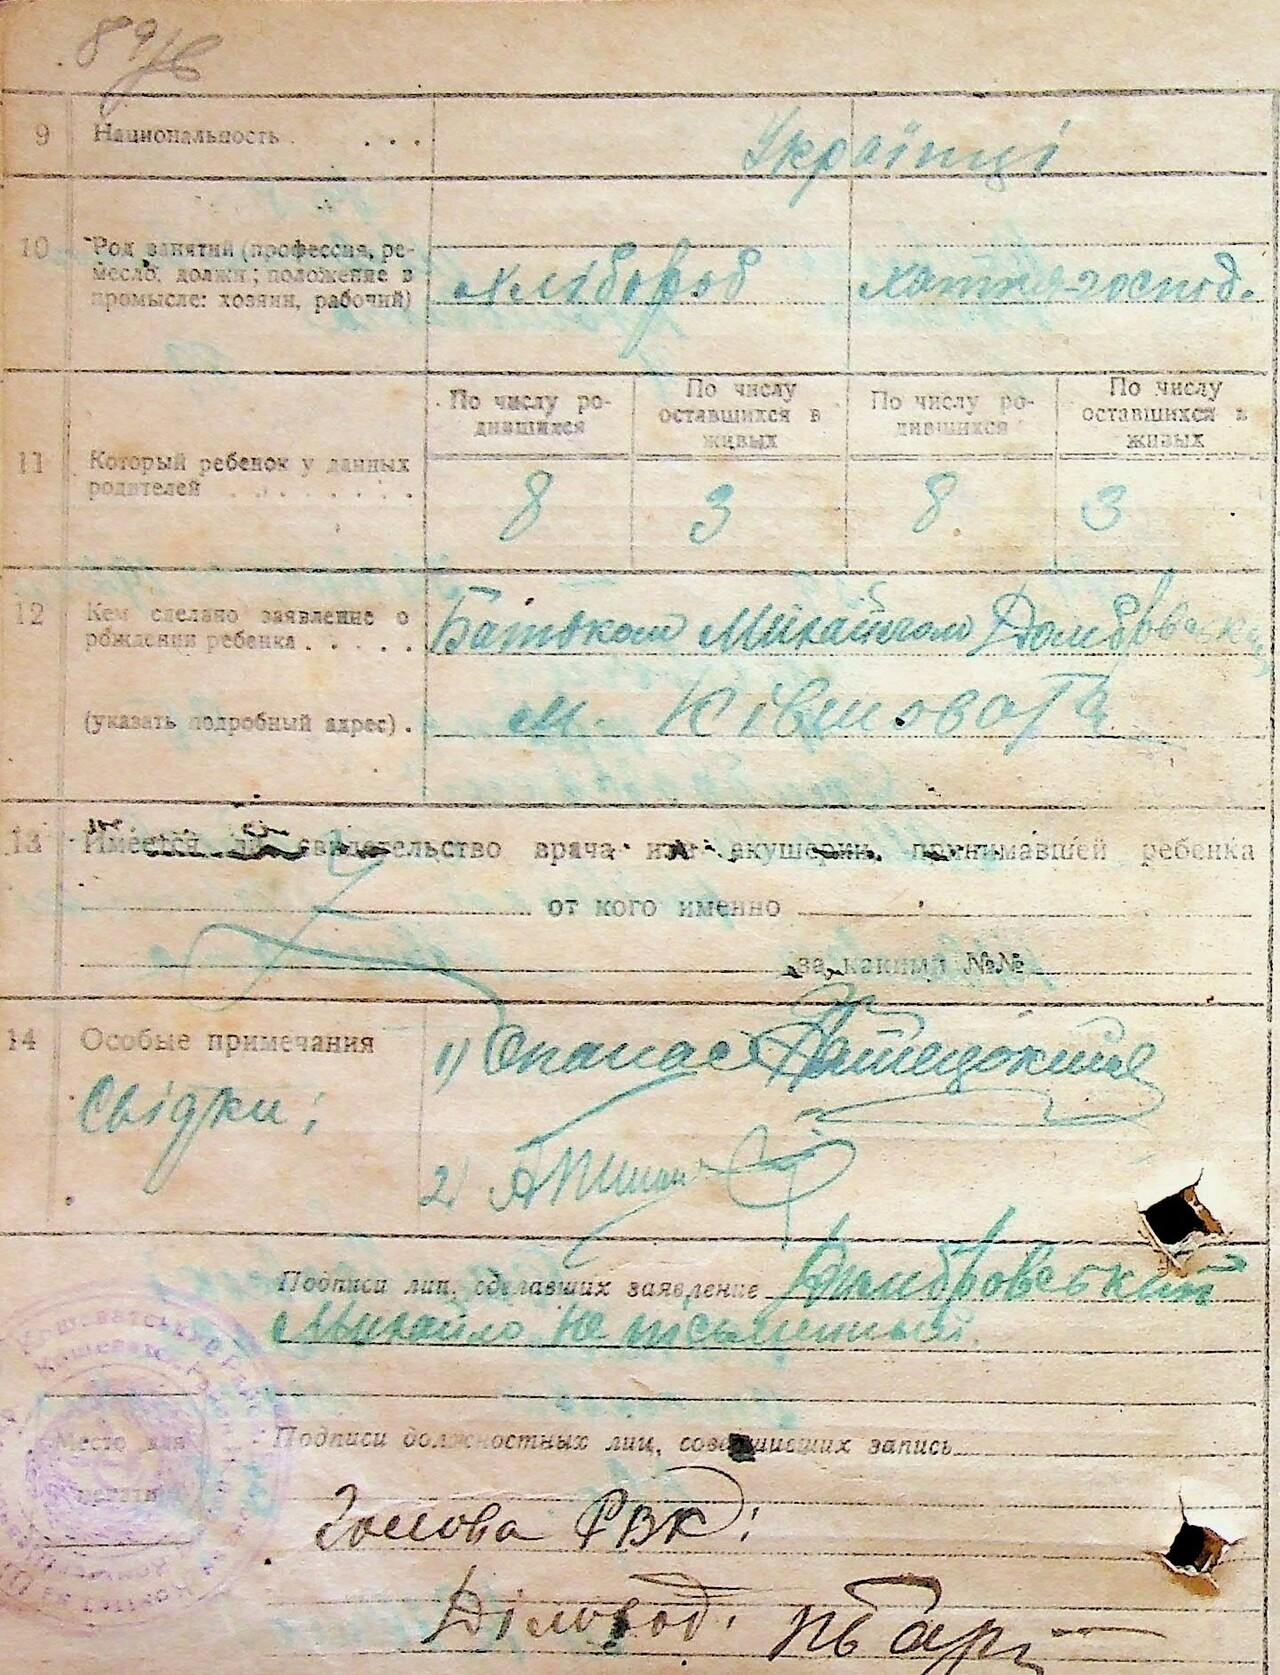 9 Национальность . . . . Українці
10 Род занятий (профессия, ре-
месло, должн; положение в
промысле: хозяин, рабочий)
хлібороб хатня-господ.
По числу ро-
дившихся
По числу
оставшихся в
живых
По числу ро-
дившихся
По числу
оставшихся в
живых
11 Который ребенок у данных
родителей . . . . . . .
8 3 8 3
12 Кем сделано заявление о
рождении ребенка . . . . .
Батьком Михайлом Домбровським
(указать подробный адрес) .
м. Ківшовата
13 Имеется ли свидетельство врача или акушерки, принимавшей ребенка
от кого именно
за каким №№
14 Особые примечания
Свідки:
1) Опанас
2)
Подписи лиц, сделавших заявление Домбровський
Михайло не письменный.
Место для
печати
Подписи должностных лиц, совершивших запись
Голова РВК:
Діловод: